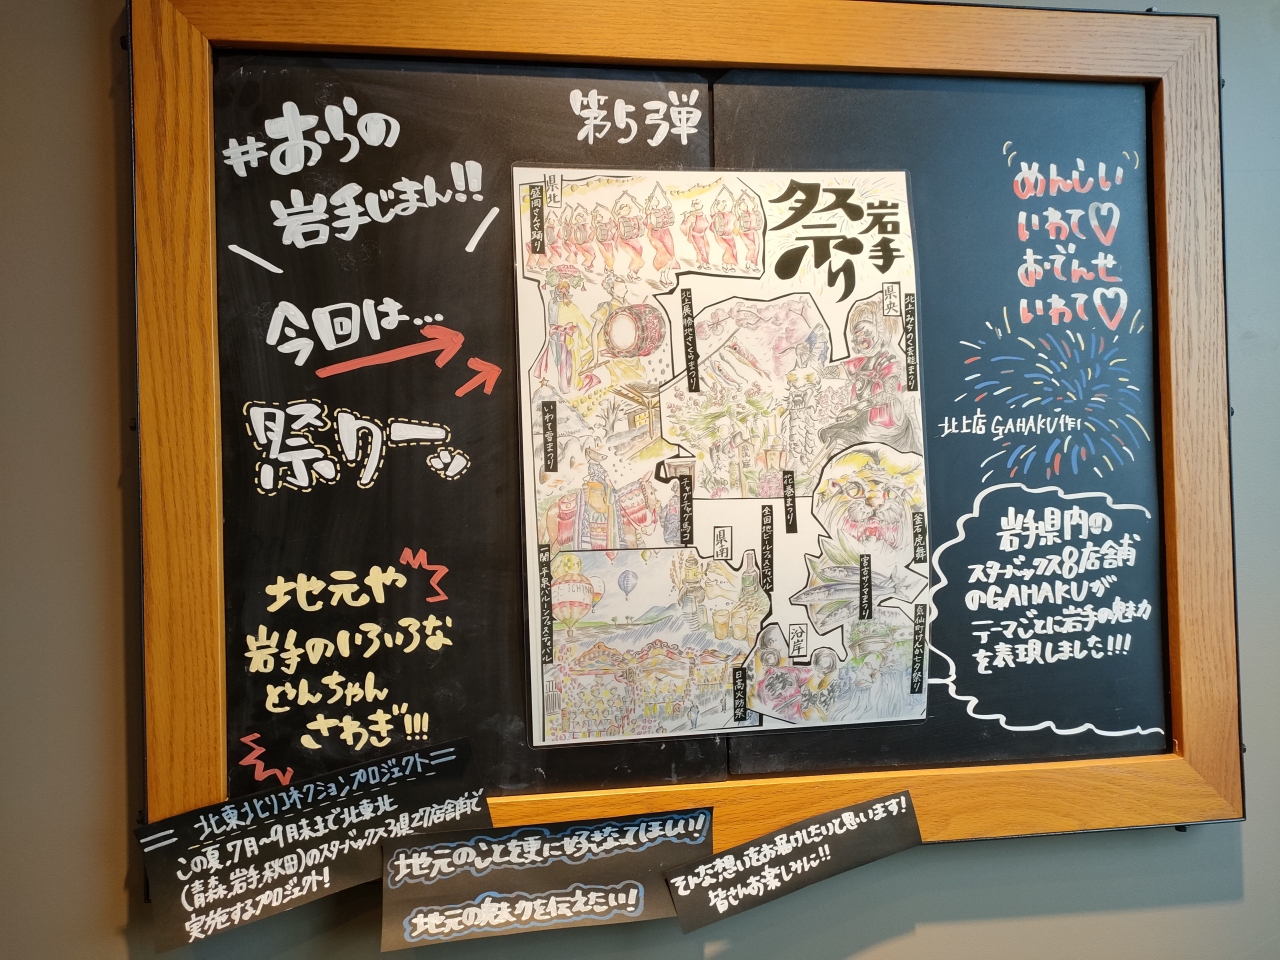 #おらの
岩手じまん!!
今回は…
祭りーッ
地元や
岩手のいろいろな
どんちゃん
さわぎ!!!
第5弾
岩手
祭り
県北
盛岡さんさ踊り
いわて雪まつり
チャグチャグ馬コ
県央
北上展勝地さくらまつり
北上みちのく芸能まつり
花巻まつり
県南
全国地ビールフェスティバル
一関・平泉バルーンフェスティバル
日高火防祭
沿岸
釜石虎舞
宮古サンマまつり
気仙町けんか七夕祭り
めんしい
いわて♡
おでんせ
いわて♡
北上店 GAHAKU作!
岩手県内の
スターバックス8店舗
のGAHAKUが
テーマごとに岩手の魅力
を表現しました!!!
北東北コネクションプロジェクト
この夏、7月~9月末まで北東北
(青森、岩手、秋田)のスターバックス3県27店舗で
実施するプロジェクト!
地元のことを更に好きなってほしい!
地元の魅力を伝えたい!
そんな想いをお届けしたいと思います!
皆さんお楽しみに!!